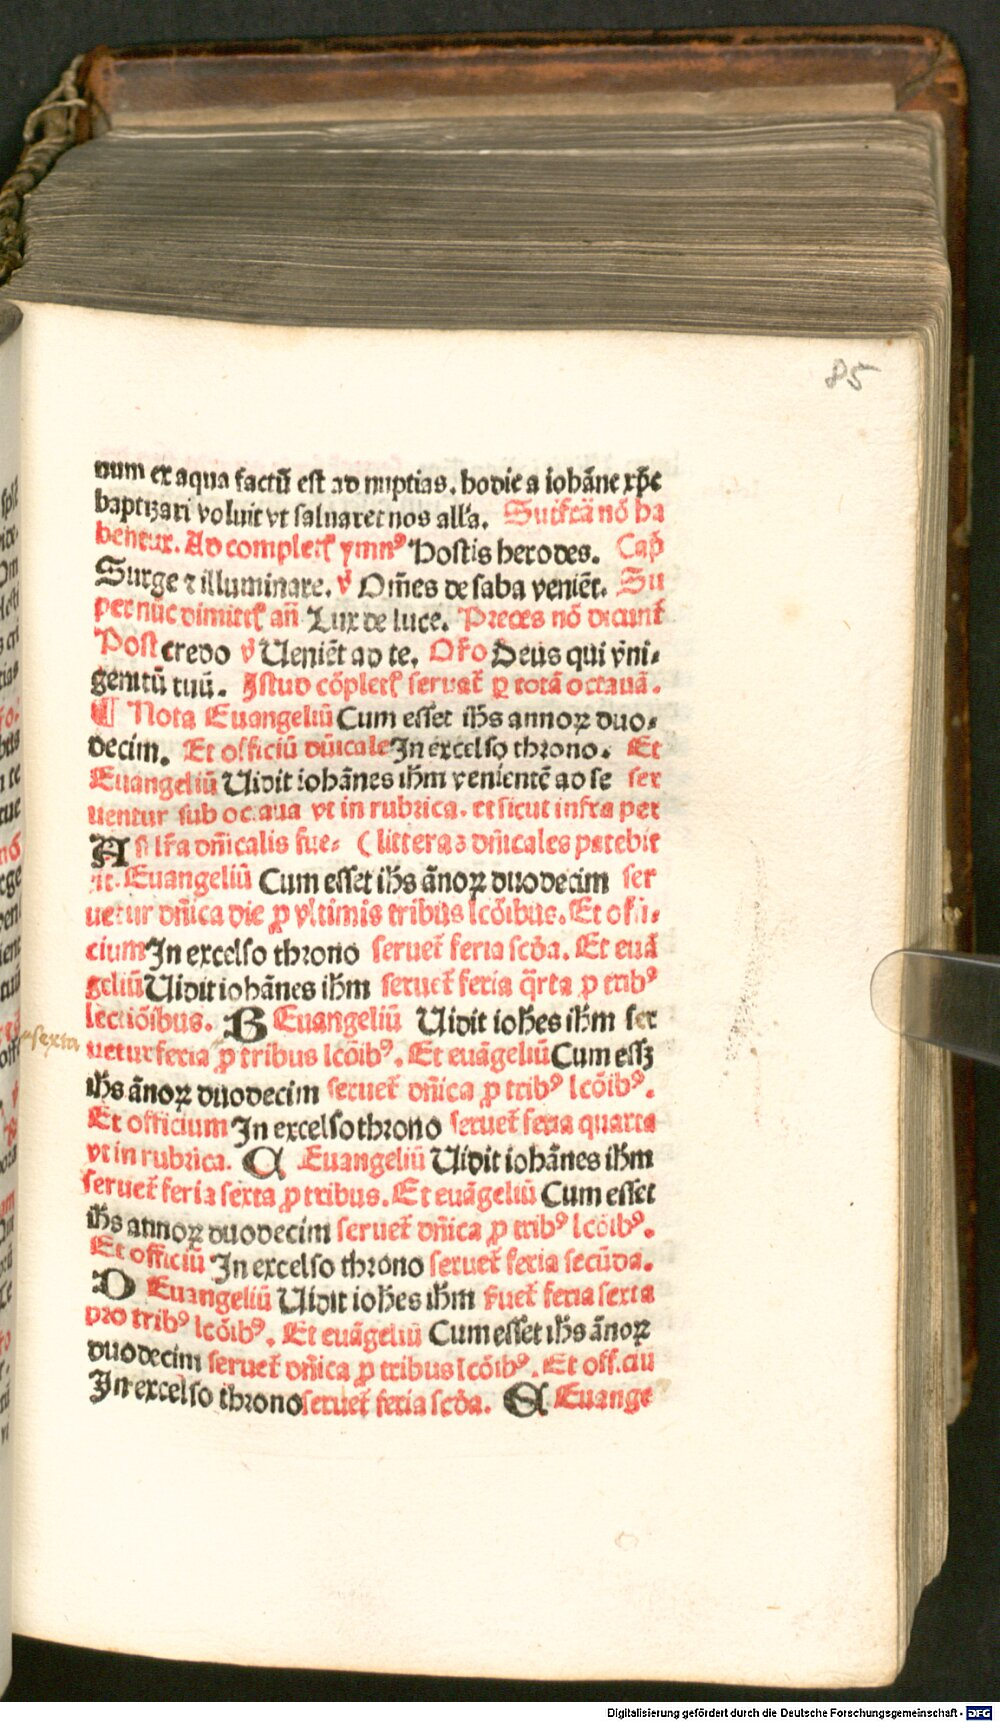 85
num ex aqua factū est ad nuptias. hodie a iohāne xp̄c
baptizari voluit vt saluaret nos all'a. Suffrā nō ha
bentur. Ad complet̄ ymn⁹ Hostis herodes. Cap̄
Surge ⁊ illuminare. v̄ Om̄es de saba veniēt. Su
per nūc dimitt̄ an̄ Lux de luce. Preces nō dicunt̄
Post credo v̄ Ueniēt ad te. Or̄o Deus qui vni-
genitū tuū. Istud cōplet̄ seruat̄ ꝑ totā octauā.
¶ Nota Euangeliū Cum esset ih̄s annoꝝ duo-
decim. Et officiū dn̄icale In excelso throno. Et
Euangeliū Uidit iohānes ih̄m venientē ad se ser
uentur sub octaua vt in rubrica. et sicut infra per
A si lr̄a dn̄icalis fue- ( litteras dn̄icales patebit
rit. Euangeliū Cum esset ih̄s ānoꝝ duodecim ser
uetur dn̄ica die ꝓ vltimis tribus lcōibus. Et offi-
cium In excelso throno seruet̄ feria scd̄a. Et euā
geliū Uidit iohānes ih̄m seruet̄ feria q̄rta ꝓ trib⁹
lectiōibus. B Euangeliū Uidit ioh̄es ih̄m ser
sexta
uetur feria ꝓ tribus lcōib⁹. Et euāgeliū Cum essꝫ
ih̄s ānoꝝ duodecim seruet̄ dn̄ica ꝓ trib⁹ lcōib⁹.
Et officium In excelso throno seruet̄ feria quarta
vt in rubrica. C Euangeliū Uidit iohānes ih̄m
seruet̄ feria sexta ꝓ tribus. Et euāgeliū Cum esset
ih̄s annoꝝ duodecim seruet̄ dn̄ica ꝓ trib⁹ lcōib⁹.
Et officiū In excelso throno seruet̄ feria secūda.
D Euangeliū Uidit ioh̄es ih̄m ſuet̄ feria sexta
pro trib⁹ lcōib⁹. Et euāgeliū Cum esset ih̄s ānoꝝ
duodecim seruet̄ dn̄ica ꝓ tribus lcōib⁹. Et officiū
In excelso throno seruet̄ feria scd̄a. E Euange
Digitalisierung gefördert durch die Deutsche Forschungsgemeinschaft - DFG